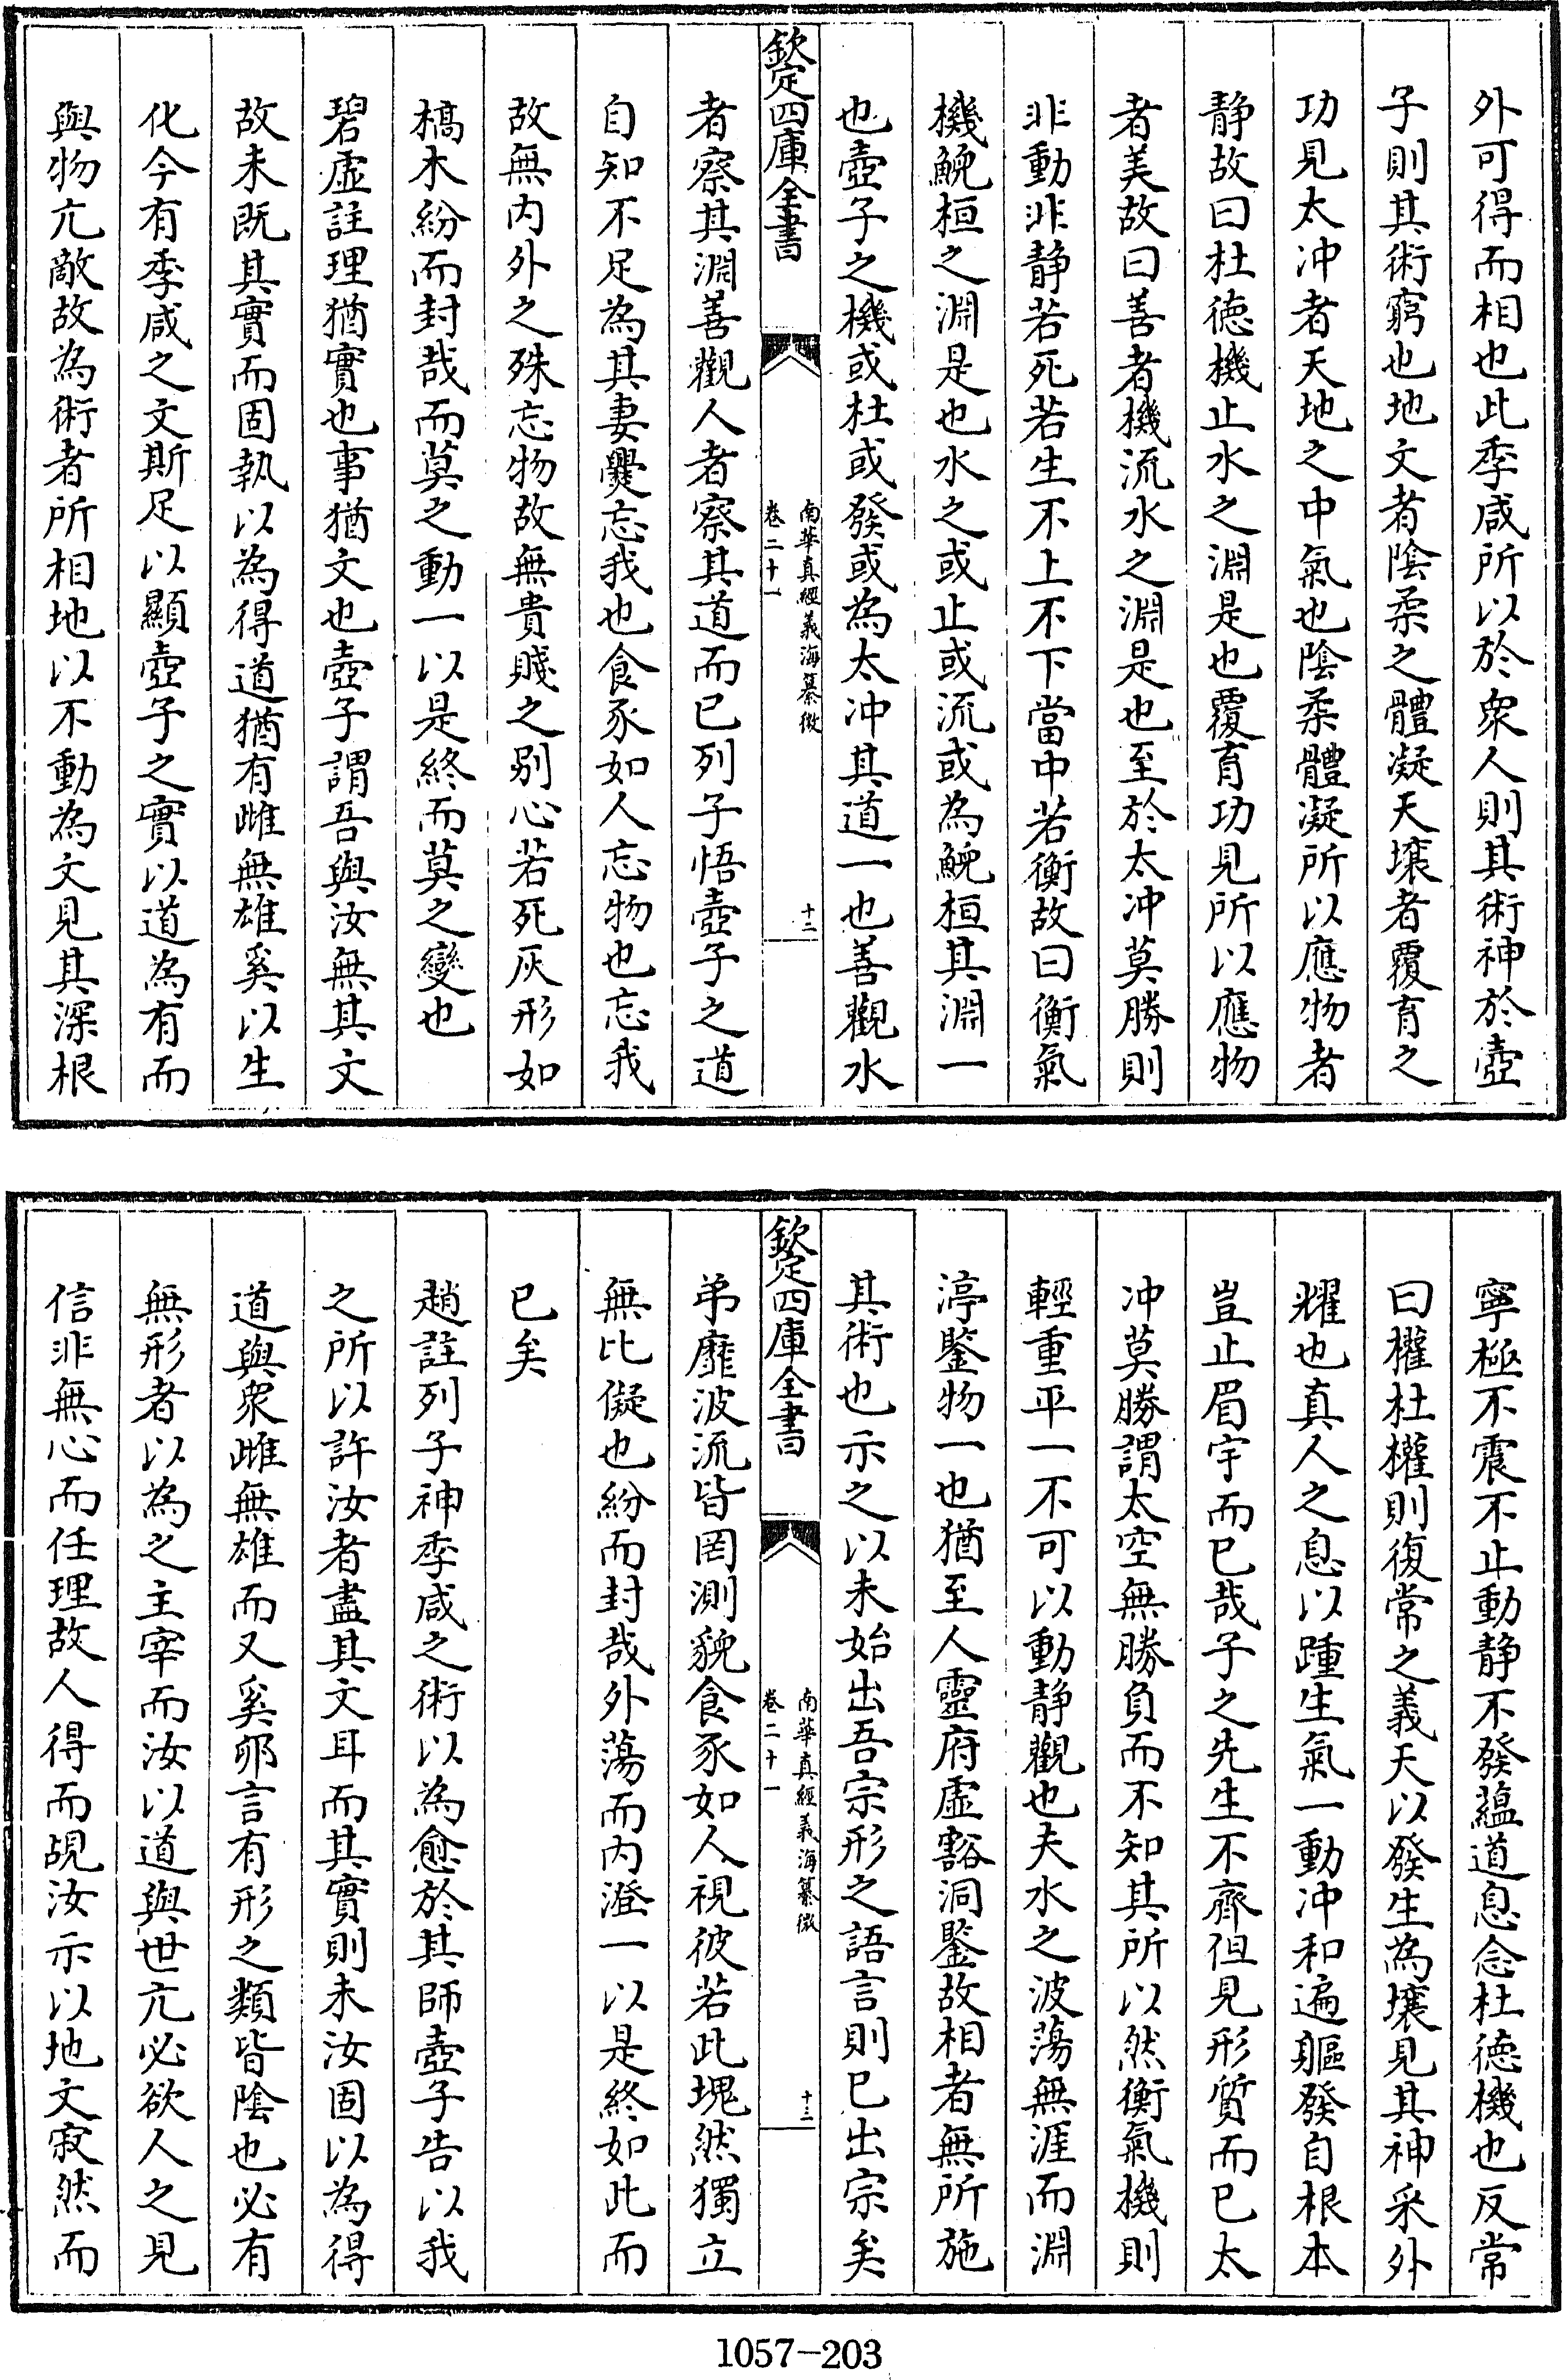 外可得而相也此季咸所以於衆人則其術神於壺
子則其術窮也地文者陰柔之體凝天壤者覆育之
功見太沖者天地之中氣也陰柔體凝所以應物者
静故曰杜徳機止水之淵是也覆育功見所以應物
者美故曰善者機流水之淵是也至於太沖莫勝則
非動非静若死若生不上不下當中若衡故曰衡氣
機鯢桓之淵是也水之或止或流或為鯢桓其淵一
也壺子之機或杜或發或為太沖其道一也善觀水
欽定四庫全書
南華真經義海纂微
卷二十一
十二
者察其淵善觀人者察其道而已列子悟壺子之道
自知不足為其妻㸑忘我也食豕如人忘物也忘我
故無内外之殊忘物故無貴賤之别心若死灰形如
槁木紛而封哉而莫之動一以是終而莫之變也
碧虚註理猶實也事猶文也壺子謂吾與汝無其文
故未既其實而固執以為得道猶有雌無雄奚以生
化今有季咸之文斯足以顯壺子之實以道為有而
與物亢敵故為術者所相地以不動為文見其深根
寧極不震不止動静不發藴道息念杜徳機也反常
曰權杜權則復常之義天以發生為壤見其神采外
耀也真人之息以踵生氣一動沖和遍軀發自根本
豈止眉宇而已哉子之先生不齊但見形質而已太
沖莫勝謂太空無勝負而不知其所以然衡氣機則
輕重平一不可以動静觀也夫水之波蕩無涯而淵
渟鑒物一也猶至人靈府虚豁洞鑒故相者無所施
其術也示之以未始出吾宗形之語言則已出宗矣
欽定四庫全書
南華真經義海纂微
卷二十一
十三
弟靡波流皆罔測貌食豕如人視彼若此塊然獨立
無比儗也紛而封哉外蕩而内澄一以是終如此而
已矣
趙註列子神季咸之術以為愈於其師壺子告以我
之所以許汝者盡其文耳而其實則未汝固以為得
道與衆雌無雄而又奚卵言有形之類皆陰也必有
無形者以為之主宰而汝以道與世亢必欲人之見
信非無心而任理故人得而覘汝示以地文寂然而
1057-203